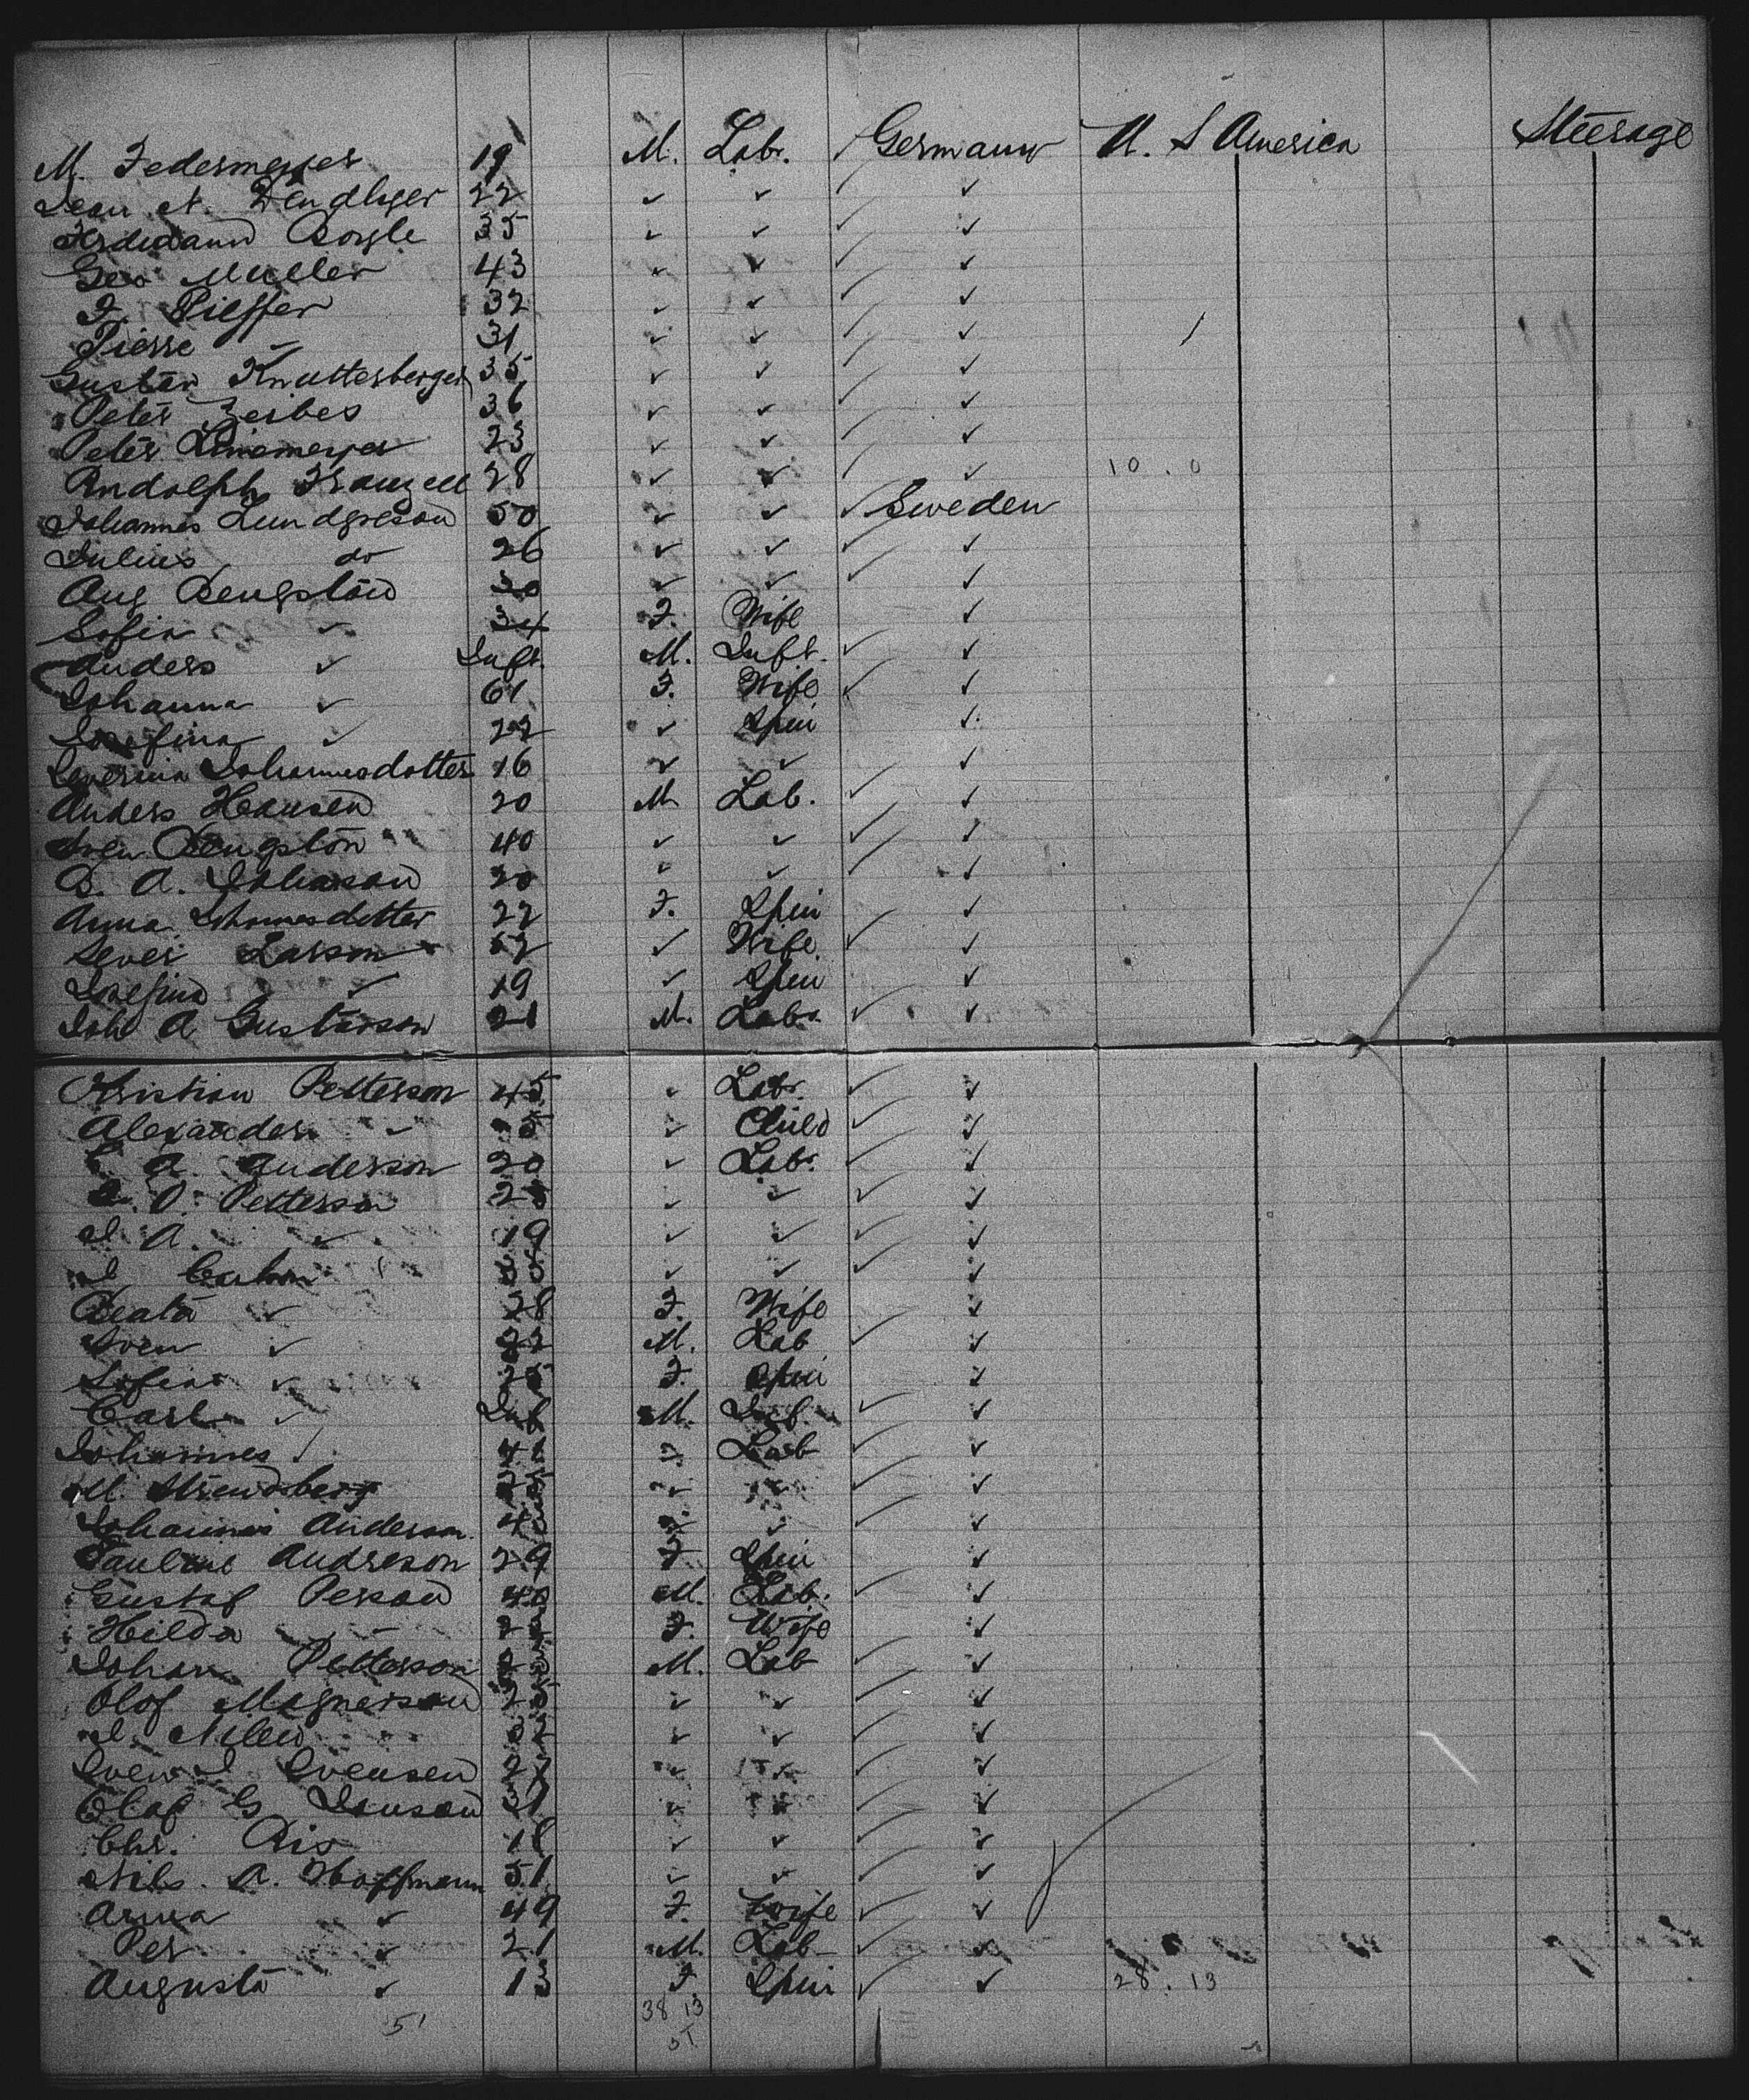 M. Federmeyer 19 M. Lab. ✓ Germany U. S America Steerage
Jean N. Dendlyer 22 ✓ ✓ ✓ ✓
Ferdinand Boyle 35 ✓ ✓ ✓ ✓
Geo Muller 43 ✓ ✓ ✓ ✓
F. Pieffer 32 ✓ ✓ ✓ ✓
Pierre ✓ 31 ✓ ✓ ✓ ✓
Gustav Knutterberger 35 ✓ ✓ ✓ ✓
Peter Zerbes 36 ✓ ✓ ✓ ✓
Peter Linemeyer 23 ✓ ✓ ✓ ✓
Rudolph Franzell 28 ✓ ✓ ✓ ✓ 10 . 0
Johannes Lundgreson 50 ✓ ✓ ✓ Sweden
Julius do 26 ✓ ✓ ✓ ✓
Aug Bengston 30 ✓ ✓ ✓ ✓
Sofia ✓ 34 F. Wife ✓
Anders ✓ Inft. M. Inft. ✓ ✓
Johanna ✓ 61 F. Wife ✓ ✓
Josefina ✓ 22 ✓ Spin ✓
Severina Johannesdotter 16 ✓ ✓ ✓
Anders Hansen 20 M Lab. ✓ ✓
Sven Bengston 40 ✓ ✓ ✓ ✓
B. A. Johanson 20 ✓ ✓ ✓ ✓
Anna Johannesdotter 22 F. Spin ✓ ✓
Sever Larson 52 ✓ Wife ✓ ✓
Josefina ✓ 19 ✓ Spin ✓
Joh A Gustavson 21 M. Lab. ✓ ✓
Kristian Petterson 45 ✓ Lab. ✓ ✓
Alexander ✓ 5 ✓ Child ✓ ✓
A. Anderson 20 ✓ Lab. ✓ ✓
O. Petterson ✓ ✓ ✓ ✓
J. A. ✓ 19 ✓ ✓ ✓ ✓
J. Carlson ✓ ✓ ✓ ✓
Beata ✓ 28 F. Wife ✓
Sven ✓ 22 M. Lab ✓ ✓
Sofia ✓ 25 F. Spin ✓
Carl ✓ Inf M. Inf. ✓ ✓
Johannes ✓ Lab ✓ ✓
M. Strendberg ✓ ✓ ✓ ✓
Johannes Anderson ✓ ✓ ✓
Pauline Andreson 29 F Spin ✓
Gustaf Person 40 M. Lab. ✓ ✓
Hilda F. Wife ✓
Johan Petterson M. Lab ✓ ✓
Olof Magnerson 25 ✓ ✓ ✓ ✓
J. Nilen 32 ✓ ✓ ✓ ✓
Sven J Svensen 27 ✓ ✓ ✓ ✓
Olof G Jonson 31 ✓ ✓ ✓ ✓
Chr. Ris 18 ✓ ✓ ✓ ✓
Nils. A. Hoffmann 51 ✓ ✓ ✓ ✓
Anna ✓ 49 F. Wife ✓ ✓
Per ✓ 21 M. Lab ✓ ✓
Augusta ✓ 13 F Spin ✓ ✓ 28 . 13
51 38 13
51